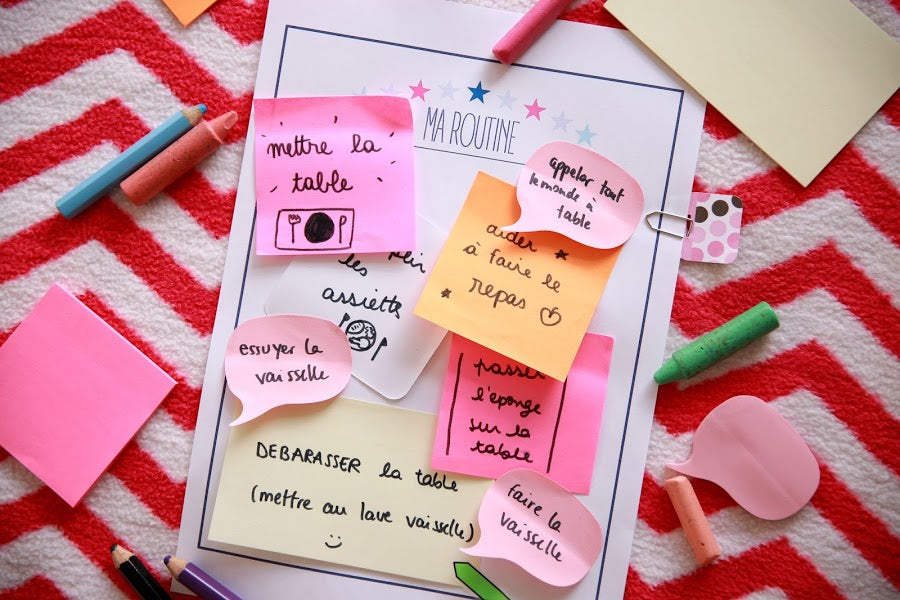 MA ROUTINE
mettre la
table
appeler tout
le monde à
table
aider
à faire le
repas
les
assiettes
essuyer la
vaisselle
passer
l'éponge
sur la
table
DEBARASSER la table
(mettre au lave vaisselle)
faire la
vaisselle